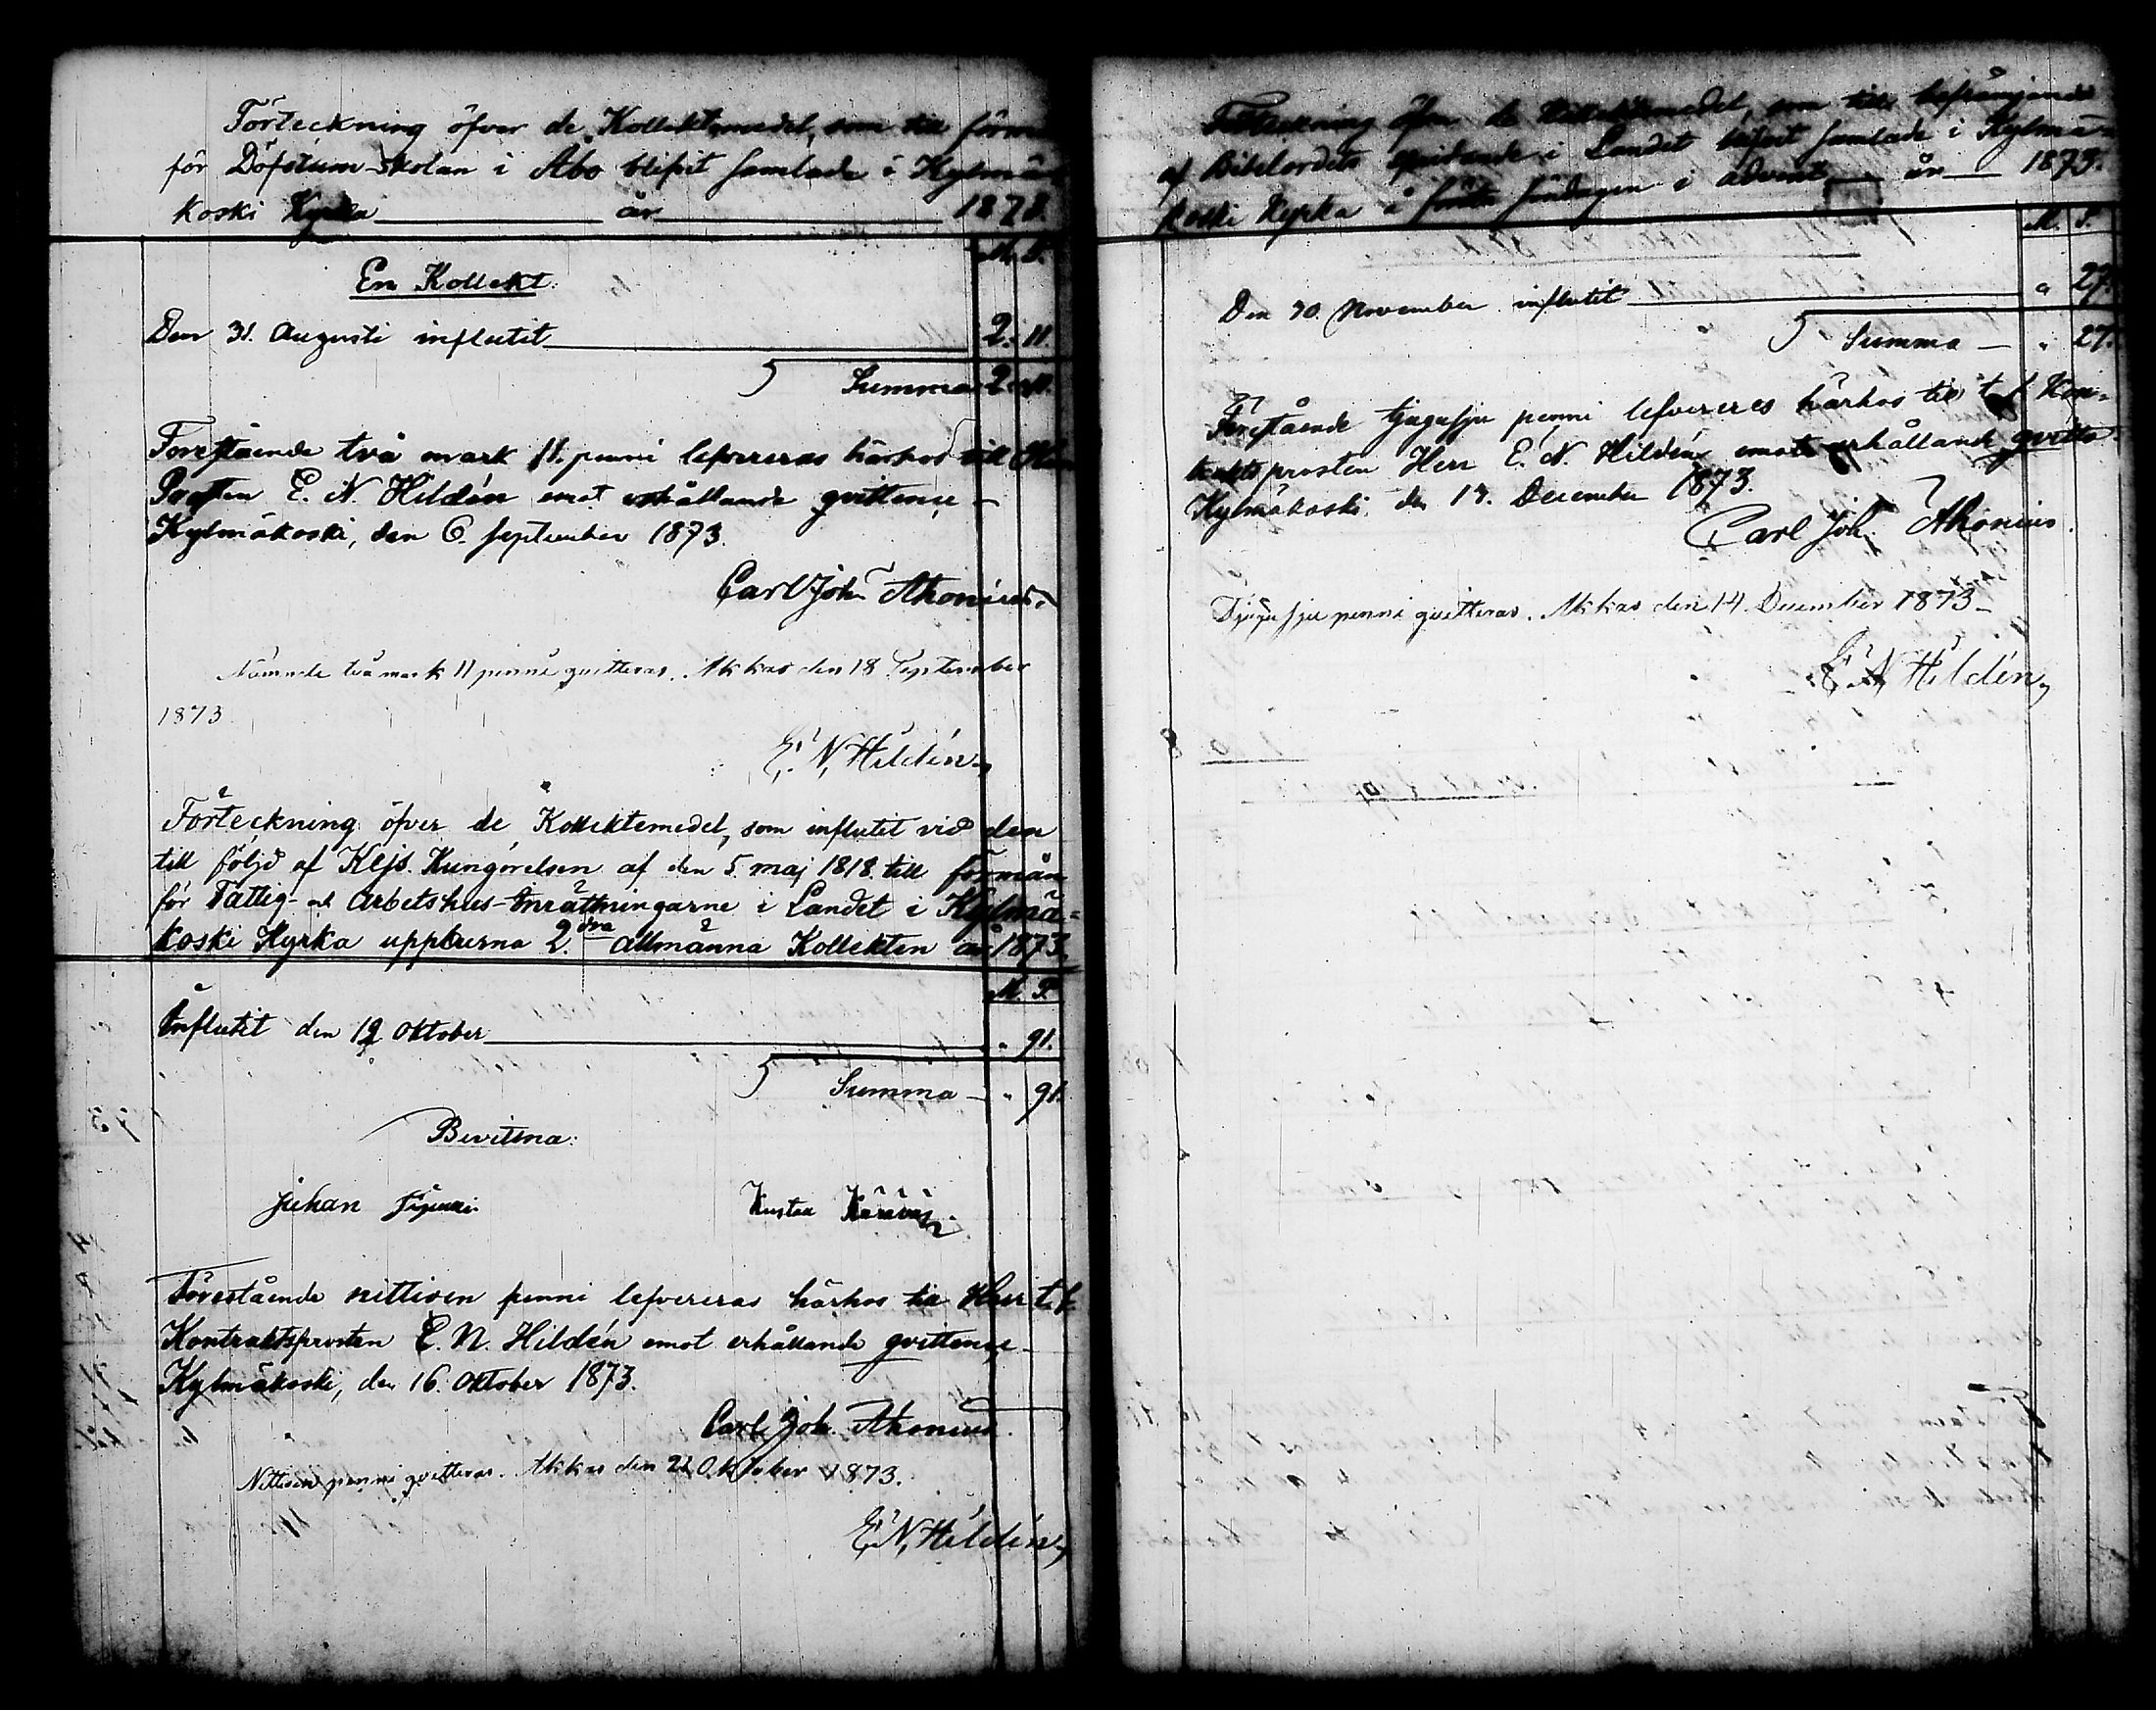 Förteckning öfver de Kollektmedel, som till förmån
för Döfstum-skolan i Åbo blifvit samlade i Kylmä-
koski Kyrka år 1873.
M. P.
En Kollekt.
Den 31. Augusti influtit 2. 11.
Summa 2. 11.
Forestående två mark 11. penni lefvereras härhos till Herr
Prosten E. N. Hildén emot erhållande qvittence -
Kylmäkoski, den 6. September 1873.
Carl Joh. Ahonius.
Nämnde två mark 11 penni qvitteras. Akkas den 18 September
1873
E. N. Hildén
Förteckning öfver de Kollektemedel, som influtit vid den
till följd af Kejs. Kungörelsen af den 5. maj 1818. till förmån
för Fattig- och Arbetshus-Inrättningarne i Landet i Kylmä-
koski Kyrka uppburna 2.dra allmänna Kollekten år 1873.
M. P.
Influtit den 12 Oktober " 91.
Summa — " 91.
Bevittna:
Juhan Kustaa
Förestående nittioen penni lefvereras härhos till Herr t. f.
Kontraktsprosten E. N. Hildén emot erhållande qvittence -
Kylmäkoski, den 16. Oktober 1873.
Carl Joh. Ahonius.
Nittioen penni qvitteras. Akkas den 21 Oktober 1873.
E. N. Hildén
Förteckning öfver de Kollektmedel, som till befrämjande
af Bibelordets spridande i Landet blifvit samlade i Kylmä-
koski Kyrka å första söndagen i advent år 1873.
M. P.
Den 30. November influtit " 27.
Summa — " 27.
Förestående tjugusju penni lefvereres härhos till t. f. Kon-
traktsprosten Herr E. N. Hildén emot erhållande qvitto.
Kylmäkoski, den 13. December 1873.
Carl Joh. Ahonius.
Tjugusju penni qvitteras. Akkas den 14 December 1873 -
E. N. Hildén